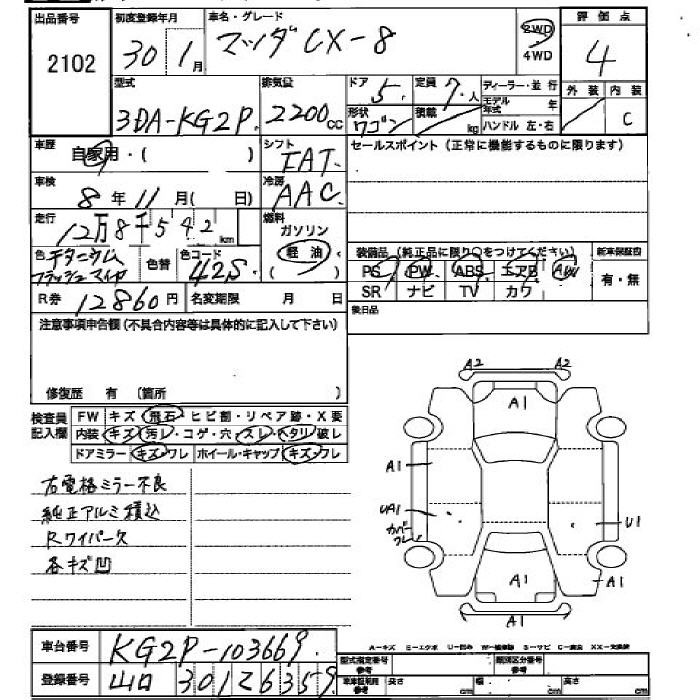 出品番号 2102
初度登録年月 30 1月
車名・グレード マツダCX-8
2WD 4WD
評価点 4
型式 3DA-KG2P.
排気量 2200cc
ドア 5.
定員 7.人
形状 ワゴン
積載 kg
ディーラー・並行
モデル年式 年
ハンドル 左・右
外装 内装 C
車歴 自家用・( )
シフト IAT.
セールスポイント (正常に機能するものに限ります)
車検 8年11月( 日)
冷房 AAC
走行 12万8千542km
燃料 ガソリン 軽油 ( )
色 チタニウムフラッシュマイカ
色替
色コード 42S.
装備品 (純正品に限り○をつけてください)
新車保証書 有・無
PS PW ABS エアB AW
SR ナビ TV カワ
R券 12860円
名変期限 月 日
後日品
注意事項申告欄 (不具合内容等は具体的に記入して下さい)
修復歴 有 〔箇所 〕
検査員記入欄
FW キズ・飛石・ヒビ割・リペア跡・X要
内装 キズ・汚レ・コゲ・穴・スレ・ヘタリ・破レ
ドアミラー キズ・ワレ ホイール・キャップ キズ・ワレ
右電格ミラー不良
純正アルミ積込
Rワイパー欠
各キズ凹
A2 A2
A1
A1
UA1
カバーワレ
U1
A1
A1
車台番号 KG2P-103669.
登録番号 山口 301 て6359
A-キズ E-エクボ U-凹み W-補修跡 S-サビ C-腐食 XX-交換済
型式指定番号 参考
類別区分番号 参考
車体証明用 参考 長さ cm 幅 cm 高さ cm